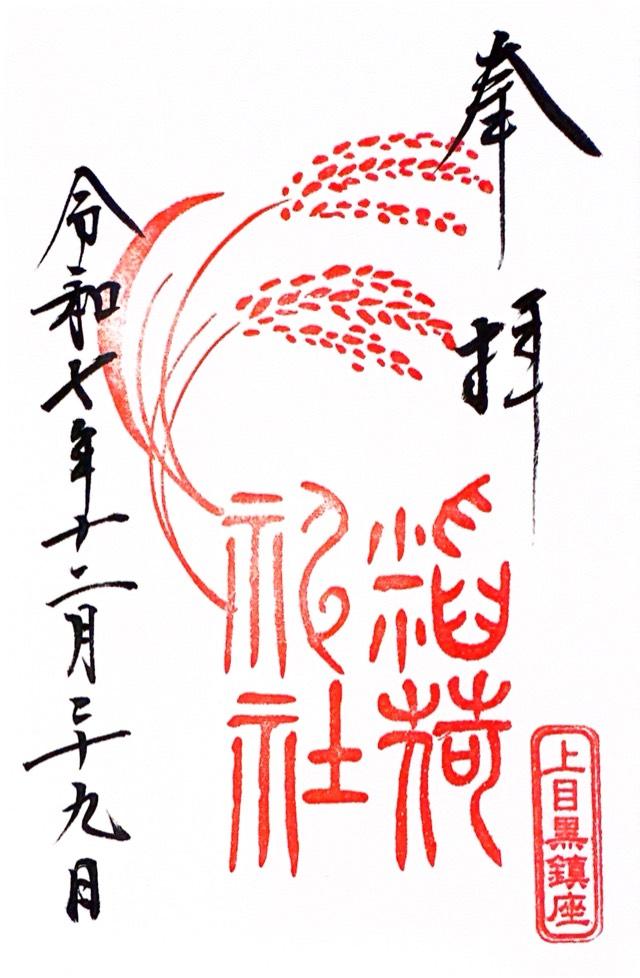 奉拝
上目黒鎮座
稲荷
神社
令和七年十二月二十九日